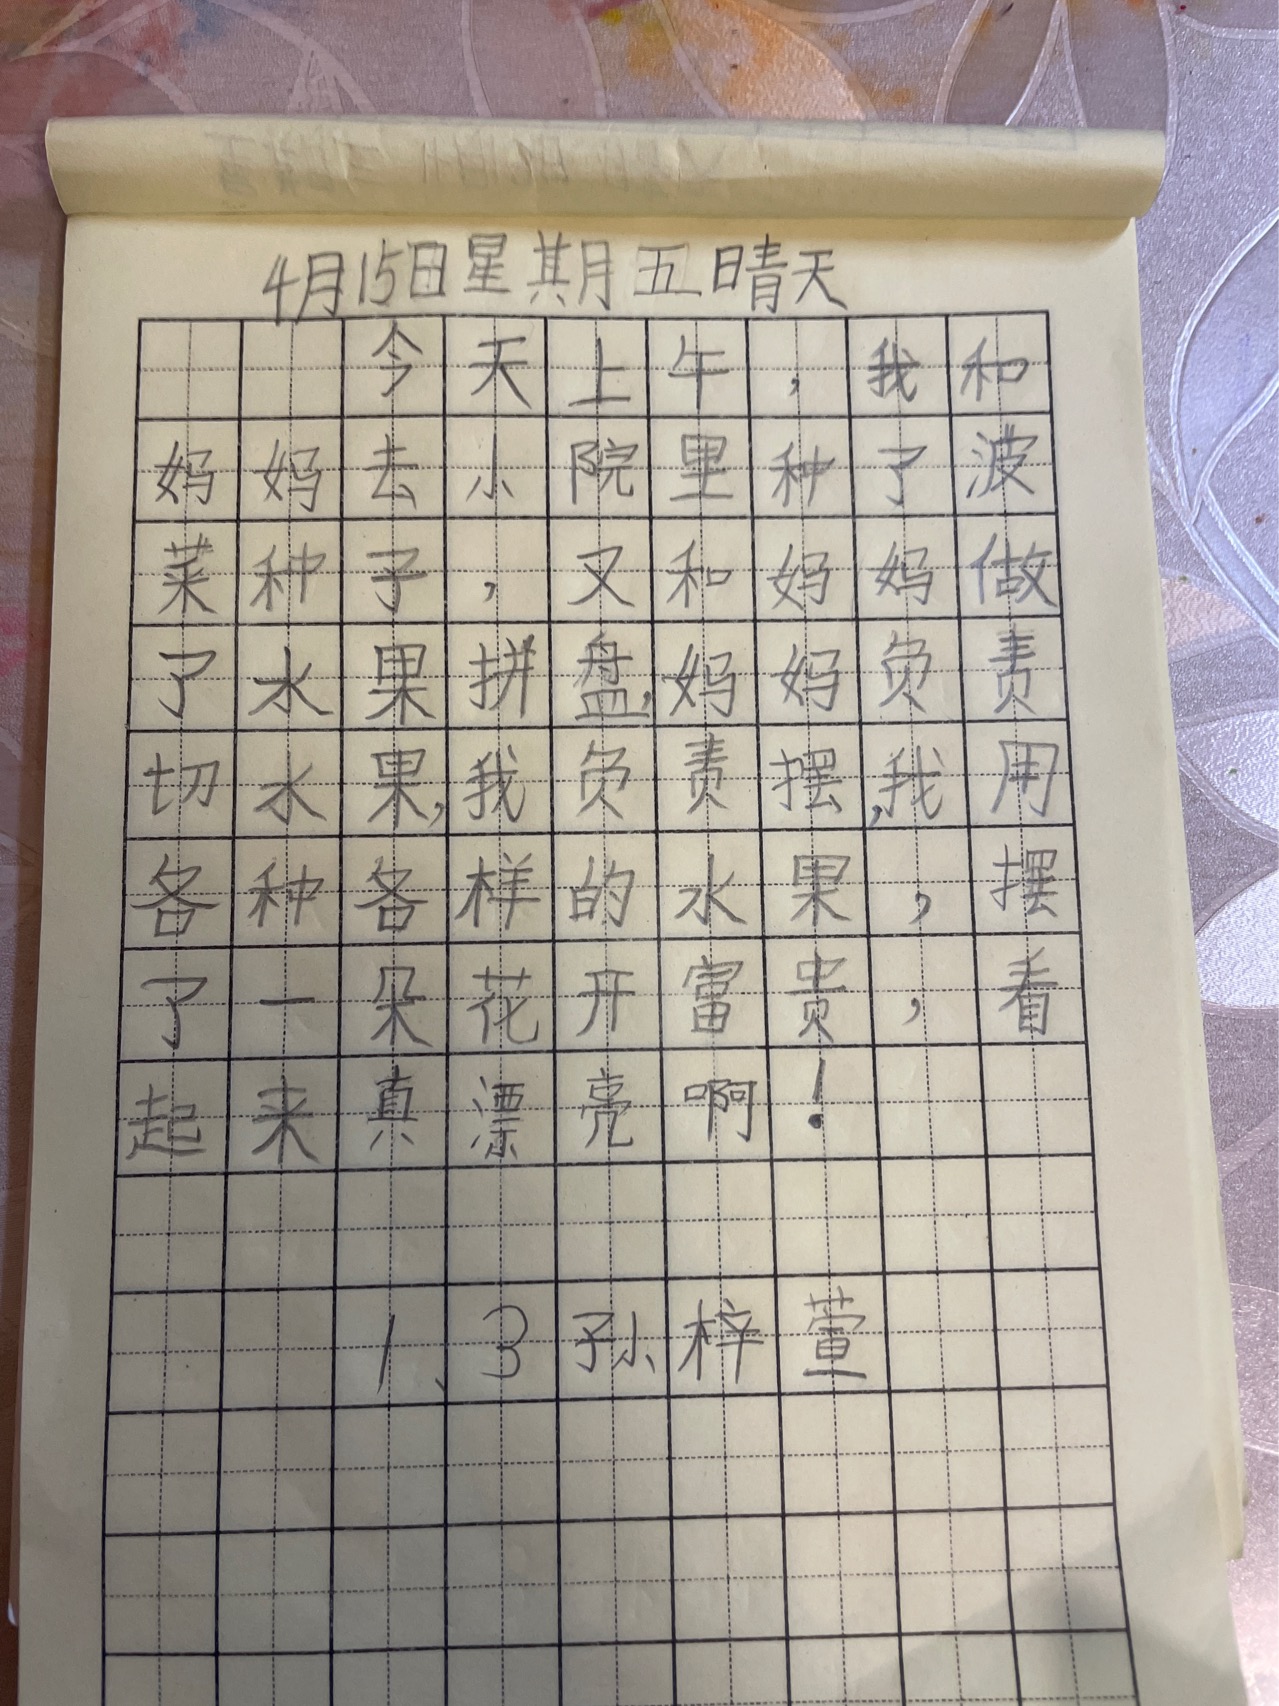 4月15日星期五晴天
今天上午，我和
妈妈去小院里种了波
菜种子，又和妈妈做
了水果拼盘，妈妈负责
切水果，我负责摆，我用
各种各样的水果，摆
了一朵花开富贵，看
起来真漂亮啊！
1、3孙梓萱